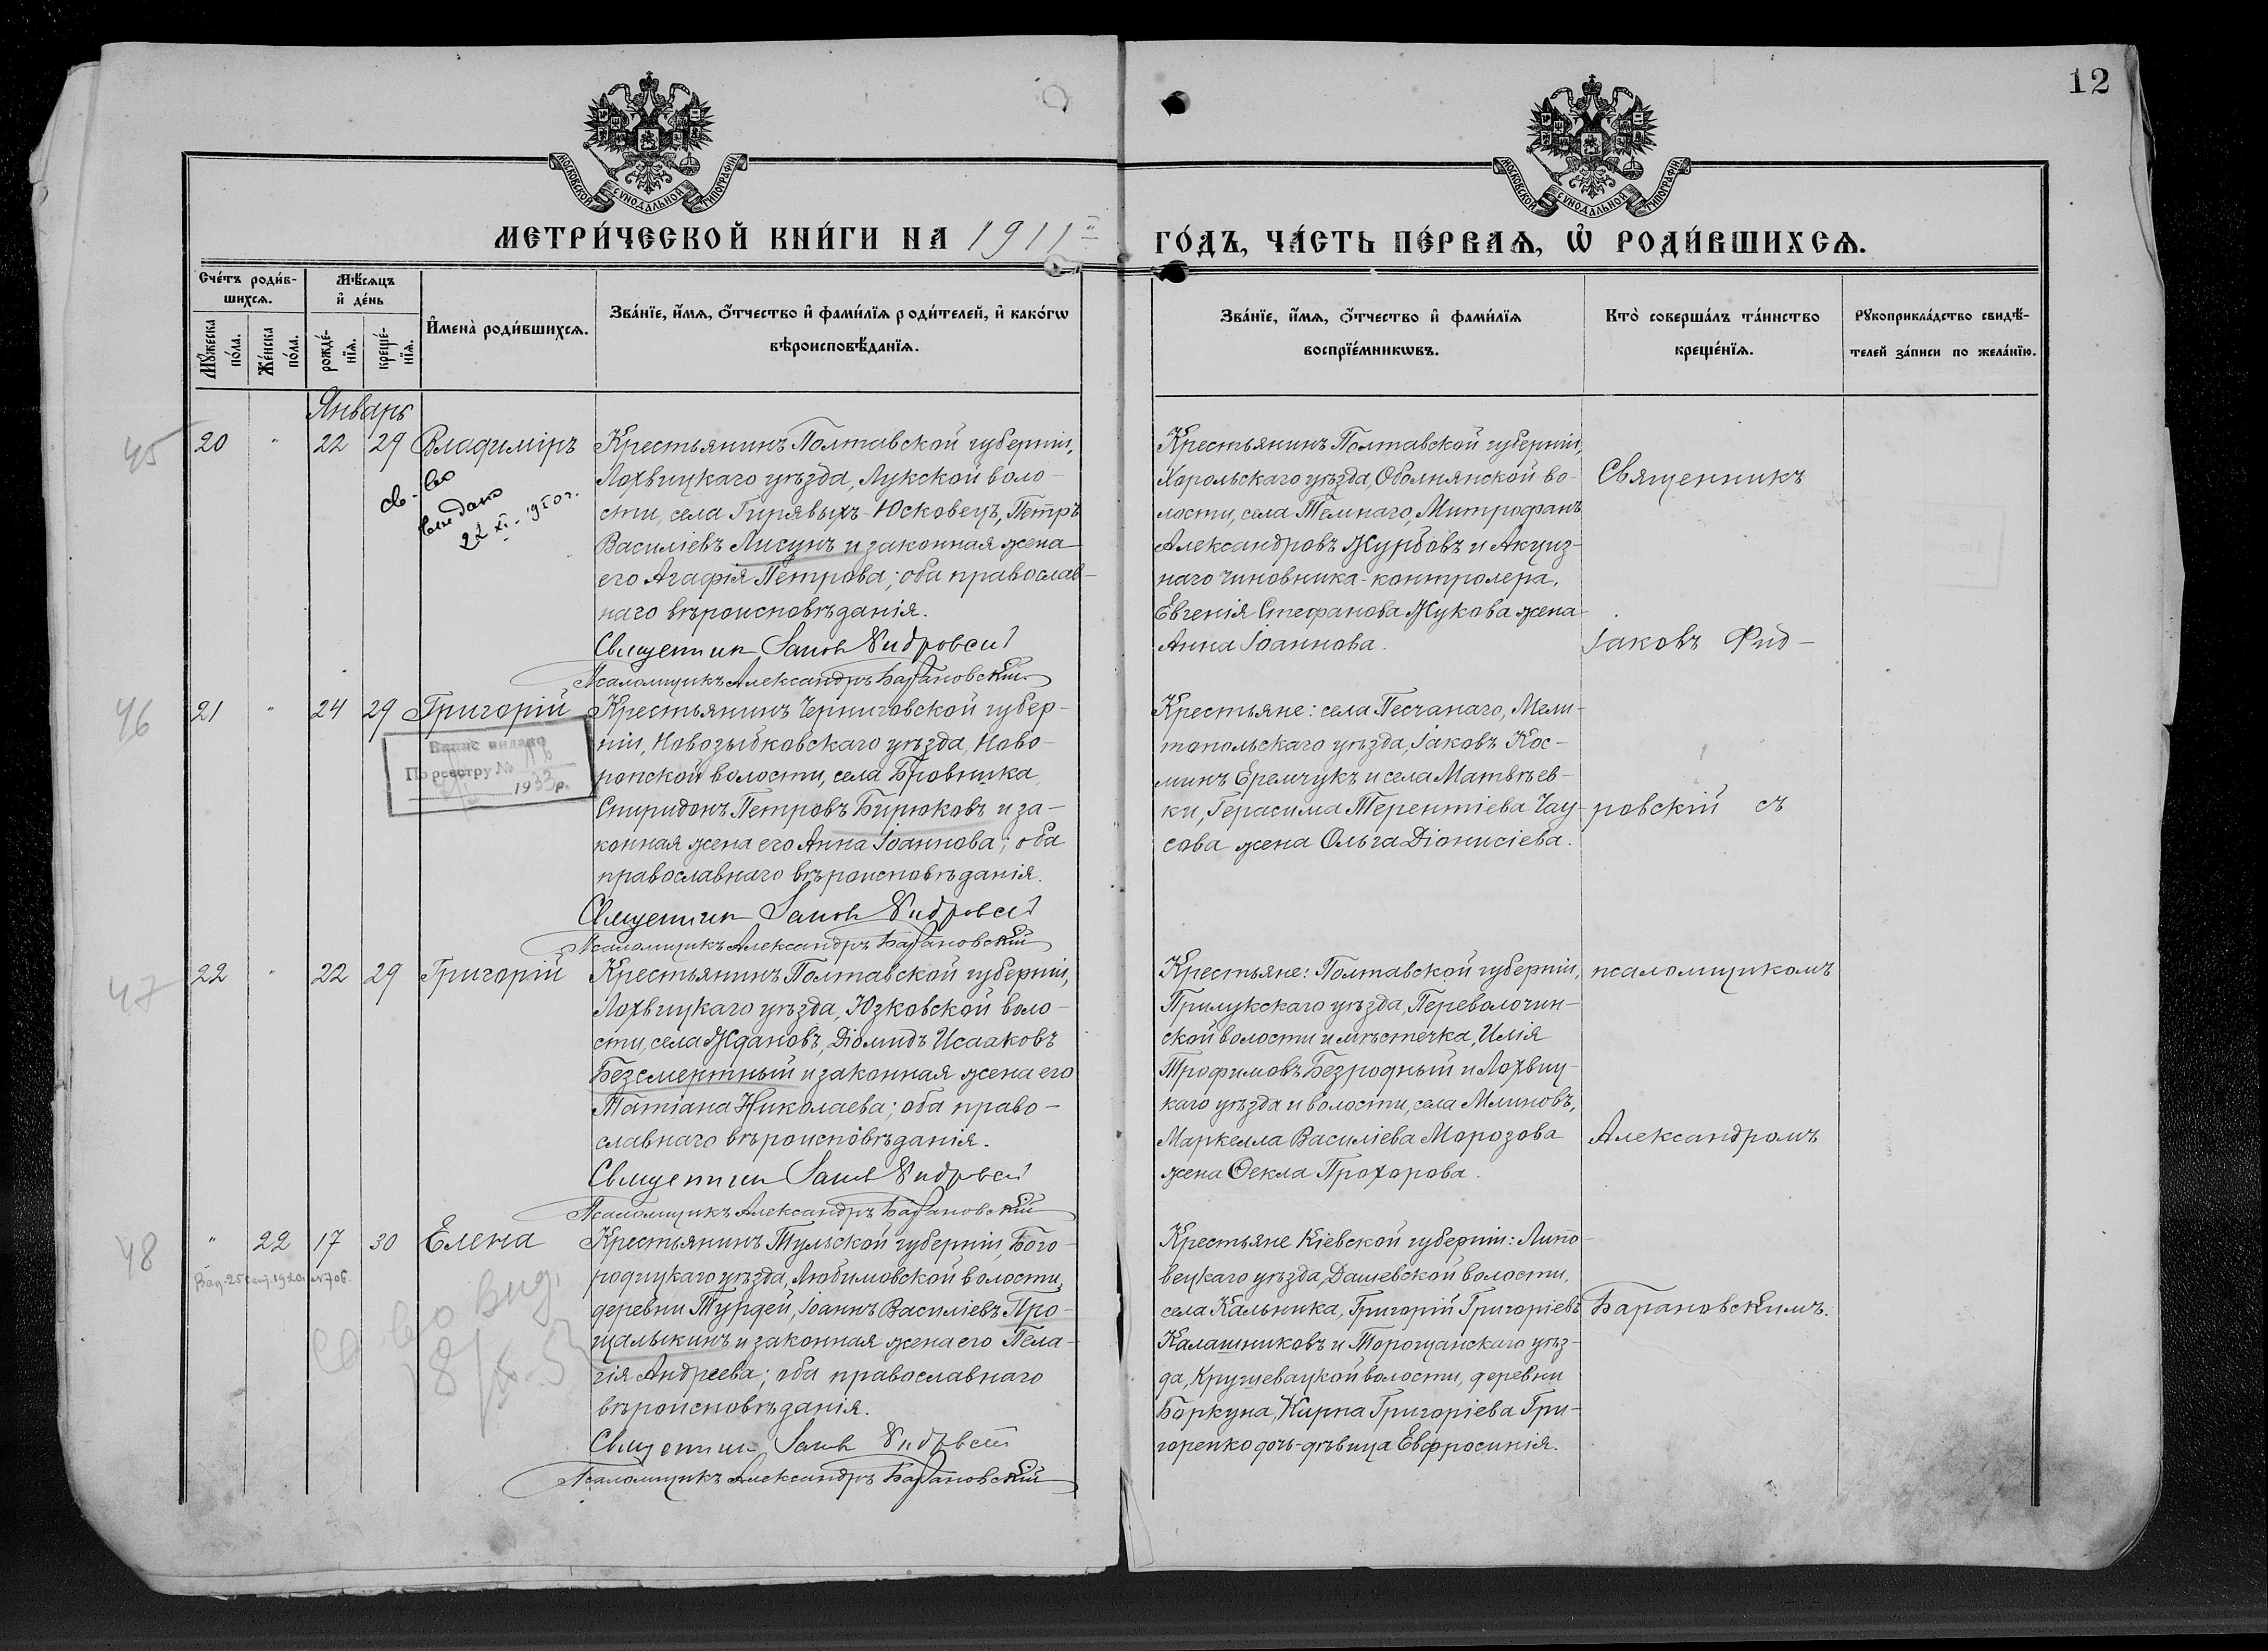 12
МОСКОВСКОЙ СУНОДАЛЬНОЙ ТИПОГРАФІИ
МОСКОВСКОЙ СУНОДАЛЬНОЙ ТИПОГРАФІИ
МЕТРИ́ЧЕСКОЙ КНИ́ГИ НА 1911
ГО́ДЪ, ЧА́СТЬ ПЕ́РВАѦ, Ѡ҆ РОДИ́ВШИХСѦ.
Сче́тъ роди́в-
шихсѧ.
Мꙋ́жеска по́ла.
Же́нска по́ла.
Мѣ́сѧцъ
и҆ де́нь
рожде́-
нїѧ.
креще́-
нїѧ.
И҆мена̀ роди́вшихсѧ.
Зва́нїе, и҆́мѧ, ѻ҆́тчество и҆ фами́лїѧ роди́телей, и҆ како́гѡ
вѣроисповѣ́данїѧ.
Зва́нїе, и҆́мѧ, ѻ҆́тчество и҆ фами́лїѧ
воспрїе́мникѡвъ.
Кто̀ соверша́лъ та́инство
креще́нїѧ.
Рꙋкоприкла́дство свидѣ́-
телей за́писи по жела́нїю.
Январь
45
20 " 22 29 Владиміръ
св-во
дано
22 XI - 1950 г.
Крестьянинъ Полтавской губерніи,
Лохвицкаго уѣзда, Лукской воло-
сти, села Гирявыхъ-Юсковецъ, Петръ
Василіевъ Лисунъ и законная жена
его Агафія Петрова; оба православ-
наго вѣроисповѣданія.
Священник Іаков Фидровскій
Псаломщикъ Александръ Барановскій
Крестьянинъ Полтавской губерніи,
Хорольскаго уѣзда, Оболнянской во-
лости, села Темнаго, Митрофанъ
Александровъ Журбовъ и Акциз-
наго чиновника-контролера,
Евгенія Стефанова Жукова жена
Анна Іоаннова.
Священникъ
Іаковъ Фид-
46
21 " 24 29 Григорій
Випис видано
По реєстру № 
1933 р.
Крестьянинъ Черниговской губер-
ніи, Новозыбковскаго уѣзда, Ново-
ропской волости, села Бровника
Спиридонъ Петровъ Бирюковъ и за-
конная жена его Анна Іоаннова; оба
православнаго вѣроисповѣданія.
Священник Іаков Фидровскій
Псаломщикъ Александръ Барановскій
Крестьяне: села Песчанаго, Мели-
топольскаго уѣзда, Іаковъ Кос-
минъ Еремчукъ и села Матвѣев-
ки, Герасима Терентіева Чау-
сова жена Ольга Діонисіева.
ровскій съ
47
22 " 22 29 Григорій
Крестьянинъ Полтавской губерніи,
Лохвицкаго уѣзда, Юзковской воло-
сти, села Ждановъ, Діомидъ Исааковъ
Безсмертный и законная жена его
Татіана Николаева; оба право-
славнаго вѣроисповѣданія.
Священник Іаков Фидровскій
Псаломщикъ Александръ Барановскій
Крестьяне: Полтавской губерніи,
Прилукскаго уѣзда, Переволочин-
ской волости и мѣстечка, Илія
Трофимовъ Безродный и Лохвиц-
каго уѣзда и волости, села Млиновъ,
Маркелла Василіева Морозова
жена Ѳекла Прохорова.
псаломщикомъ
Александромъ
48
" 22 17 30 Елена
Выд. 25 1920. №706.
св-во выд.
Крестьянинъ Тульской губерніи, Бого-
родицкаго уѣзда, Любимовской волости,
деревни Турдей, Іоаннъ Василіевъ Про-
щалыкинъ и законная жена его Пела-
гія Андреева; оба православнаго
вѣроисповѣданія.
Священник Іаков Фидровскій
Псаломщикъ Александръ Барановскій
Крестьяне Кіевской губерніи: Липо-
вецкаго уѣзда, Дашевской волости,
села Кальника, Григорій Григоріевъ
Калашниковъ и Торощанскаго уѣз-
да, Кружевацкой волости, деревни
Боркуна, Карпа Григоріева Гри-
горенко дочь-дѣвица Евфросинія.
Барановскимъ.